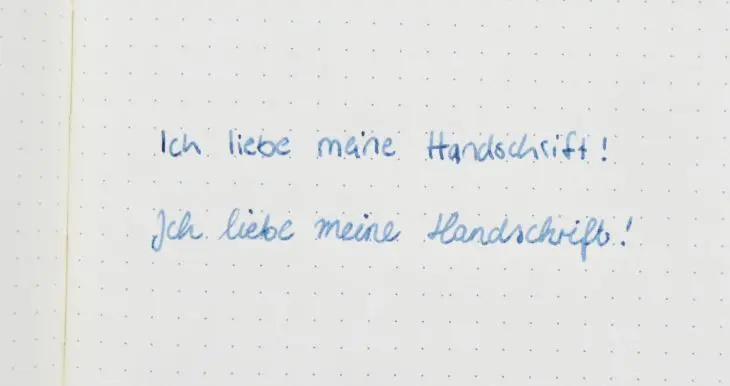 Ich liebe meine Handschrift!
Ich liebe meine Handschrift!